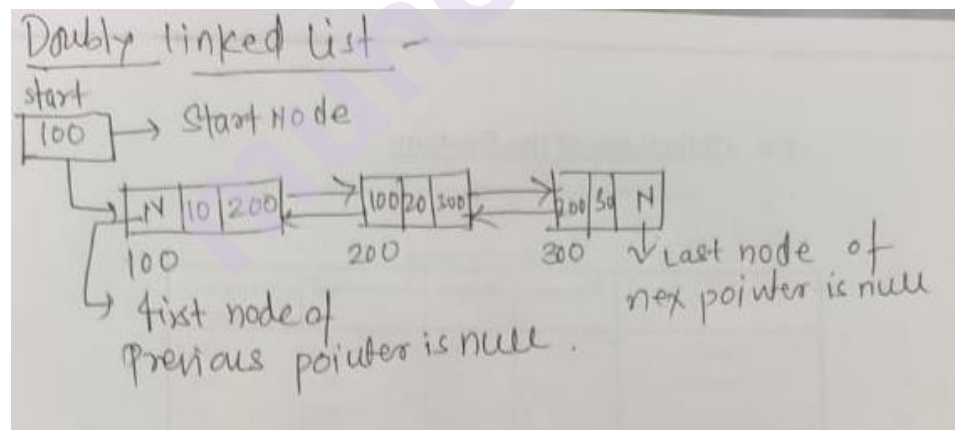 Doubly linked list -
start
100 → Start Node
N 10 200
100 20 300
200 50 N
100
200
300
Last node of
nex pointer is null
first node of
Previous pointer is null.